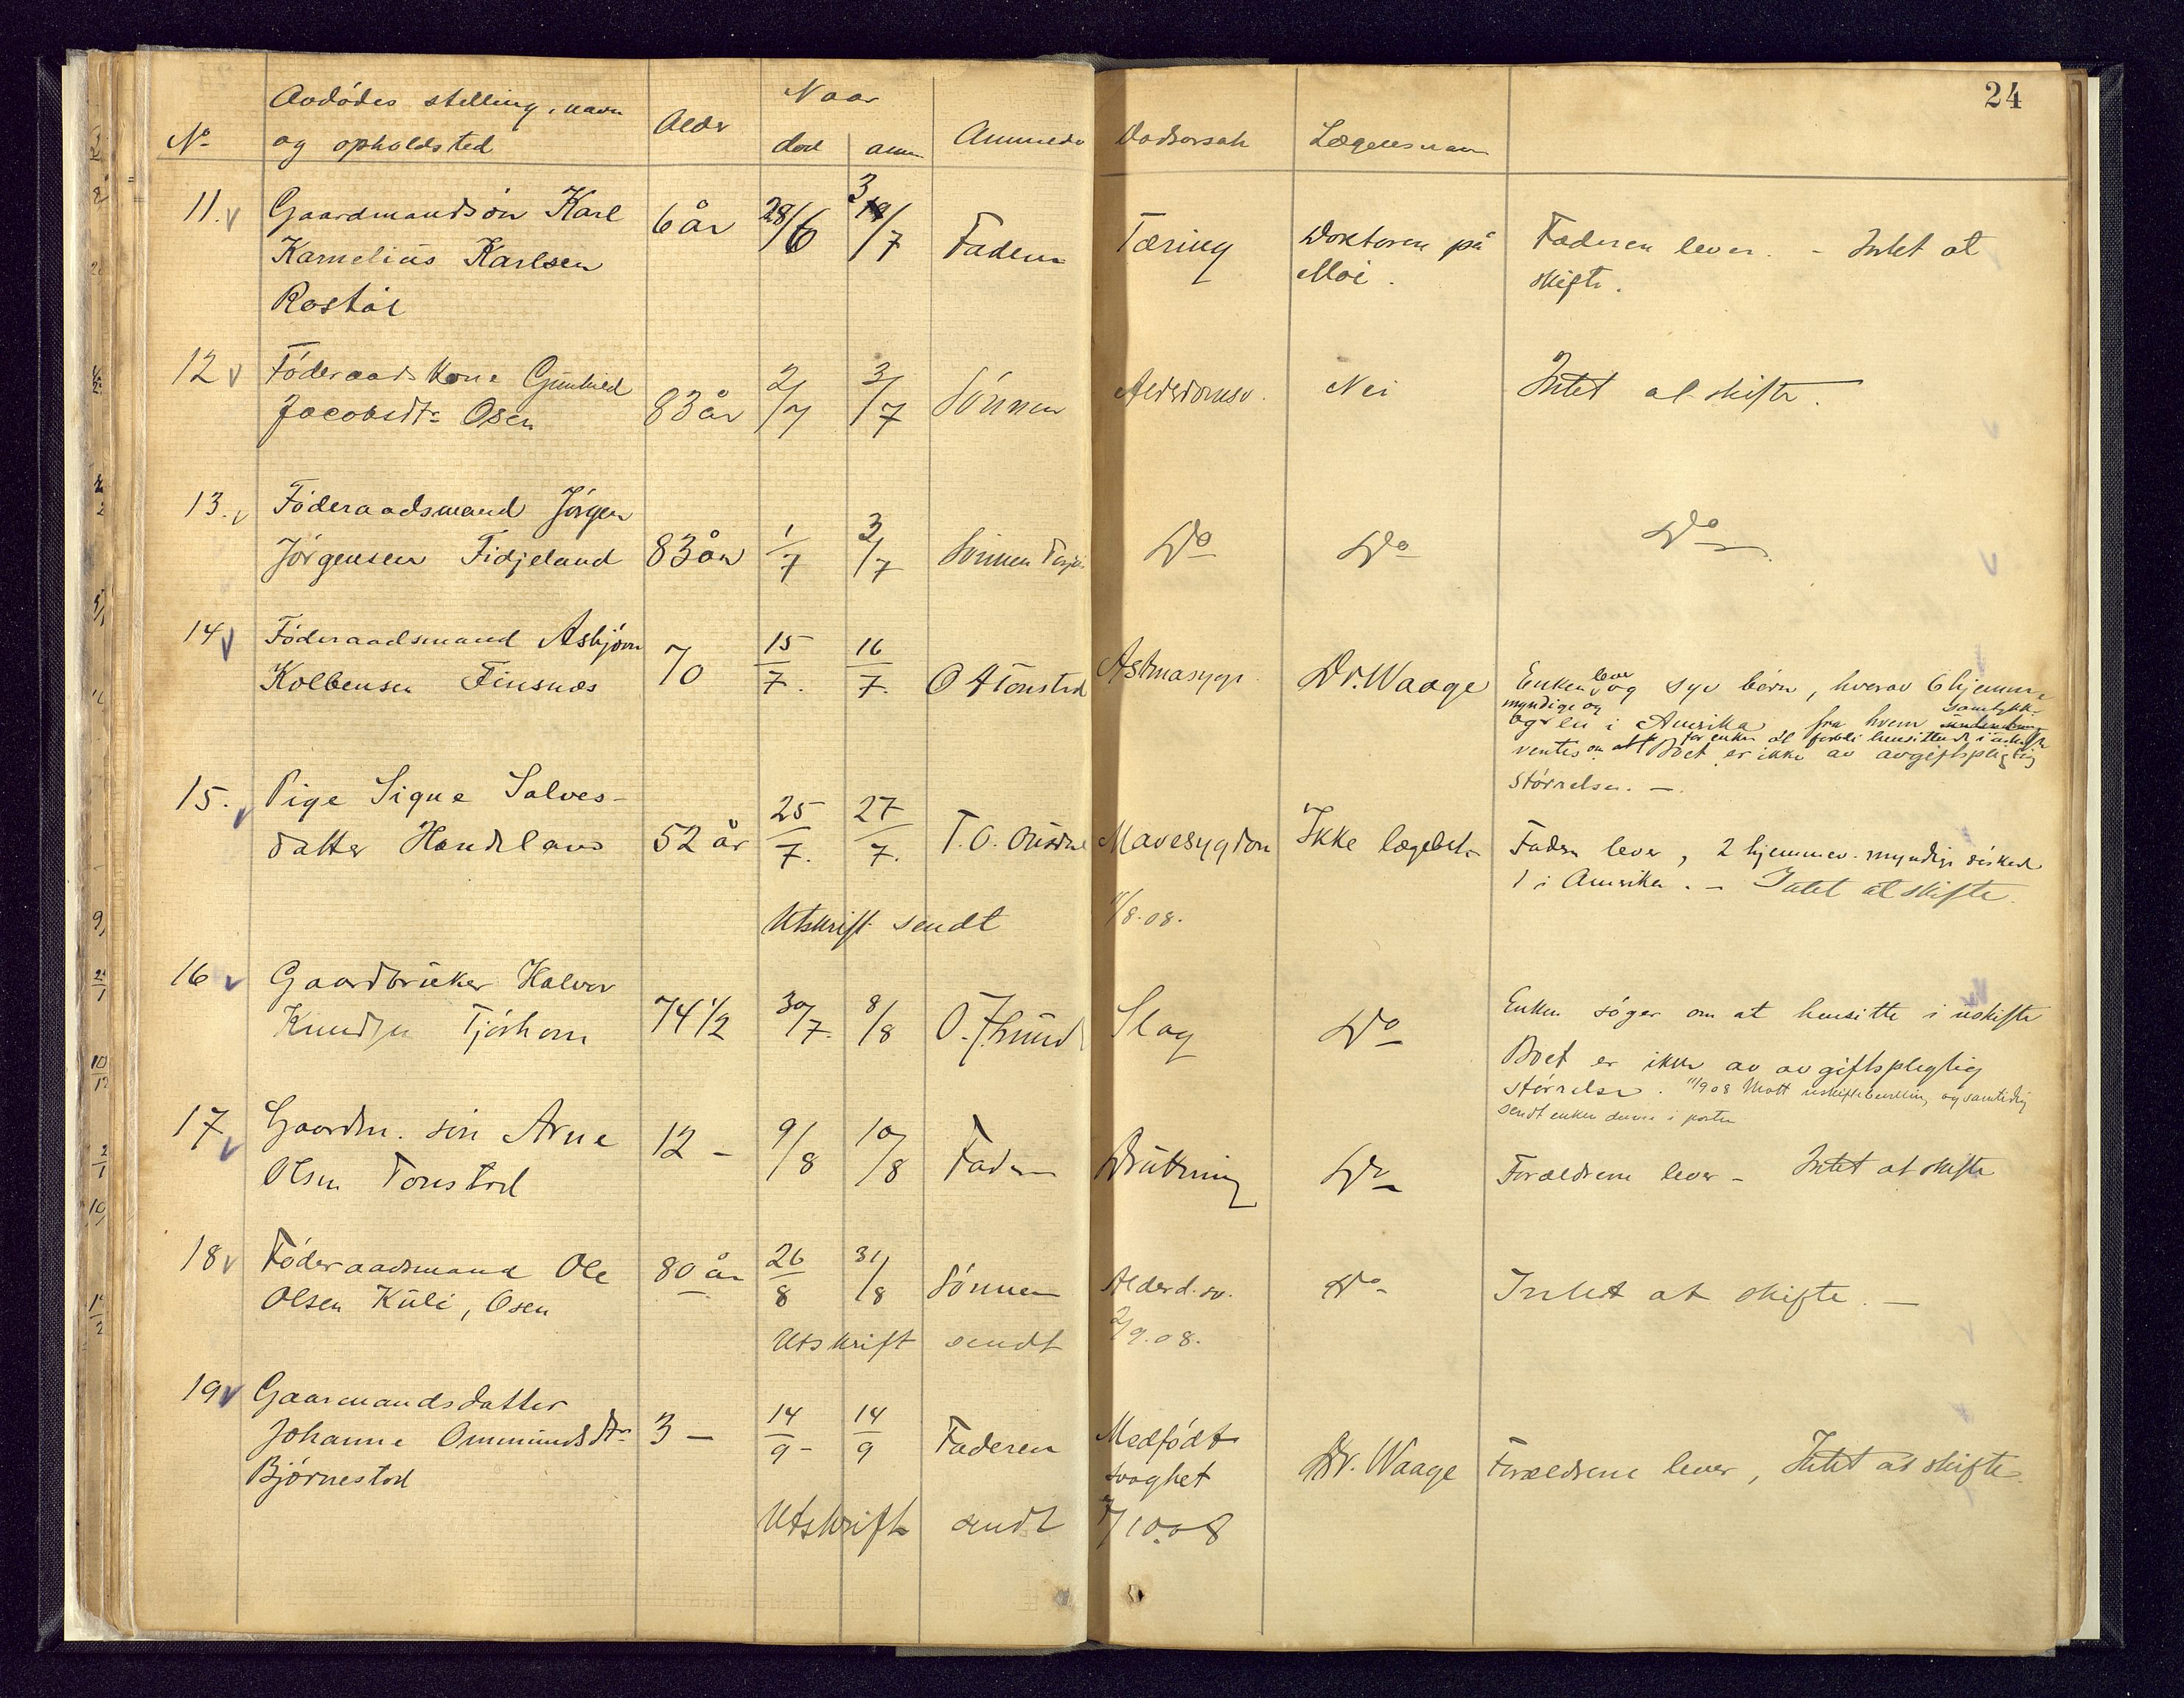 24
No Avdødes stilling, navn og opholdsted Alder Naar død anm Anmelder Dødsorsak Lægens navn
11. Gaardmandsøn Karl 6 år 28/6 3/7 Faderen Tæring Doktoren på Faderen lever. - Intet at
Karnelius Karlsen Moi. skifte.
Rostøl
12 Føderaadskone Gunhild 83 år 2/7 3/7 Sønnen Alderdomssv. Nei Intet at skifte.
Jacobsdtr Osen
13. Føderaadsmand Jørgen
Jørgensen Fidjeland 83 år 1/7 3/7 Sønnen Do Do Do
14 Føderaadsmand Asbjørn 70 15/7. 16/7. O A Tonstad Astmasyge Dr. Waage Enken lever og syv børn, hverav 6 hjemme
Kolbensen Finsnæs myndige og
og en i Amerika fra hvem samtykke
ventes om at for enken at forbli hensittende i uskifte
Boet er ikke av avgiftspligtig
størrelse. -.
15. Pige Signe Salves- 52 år 25/7. 27/7. T. O. Ousdal Mavesygdom Ikke lægebeh. Faderen lever, 2 hjemmev. myndige søskende
datter Handeland 1 i Amerika. - Intet at skifte.
Utskrift sendt 11/8.08.
16 Gaardbruker Halvor 74 1/2 30/7. 8/8 Slag Do Enken søger om at hensitte i uskifte
Knudsen Tjørhom Boet er ikke av avgiftspligtig
størrelse. 11/9 08 Mott uskiftebevilling og samtidig
sendt enken denne i posten
17 Gaardm. søn Arne 12 - 9/8 10/8 Faderen Drukning Do Forældrene lever - Intet at skifte
Olsen Tonstad
18 Føderaadsmand Ole 80 år 26/8 31/8 Sønnen Alderd. sv. Do Intet at skifte. -
Olsen Kuli, Osen
Utskrift sendt 2/9.08.
19 Gaarmandsdatter
Johanne Ommundsdtr 3 - 14/9 - 14/9 Faderen Medfødt Dr. Waage Forældrene lever, Intet at skifte.
Bjørnestad svaghet
Utskrift sendt /10.08